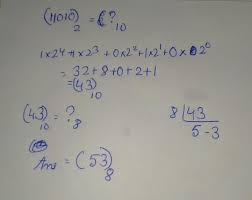 (11010)₂ = (?₁₀
1×2⁴+1×2³+0×2²+1×2¹+0×2⁰
= 32+8+0+2+1
= (43)₁₀
(43)₁₀ = ?₈
8 | 43
5 - 3
Ans = (53)₈